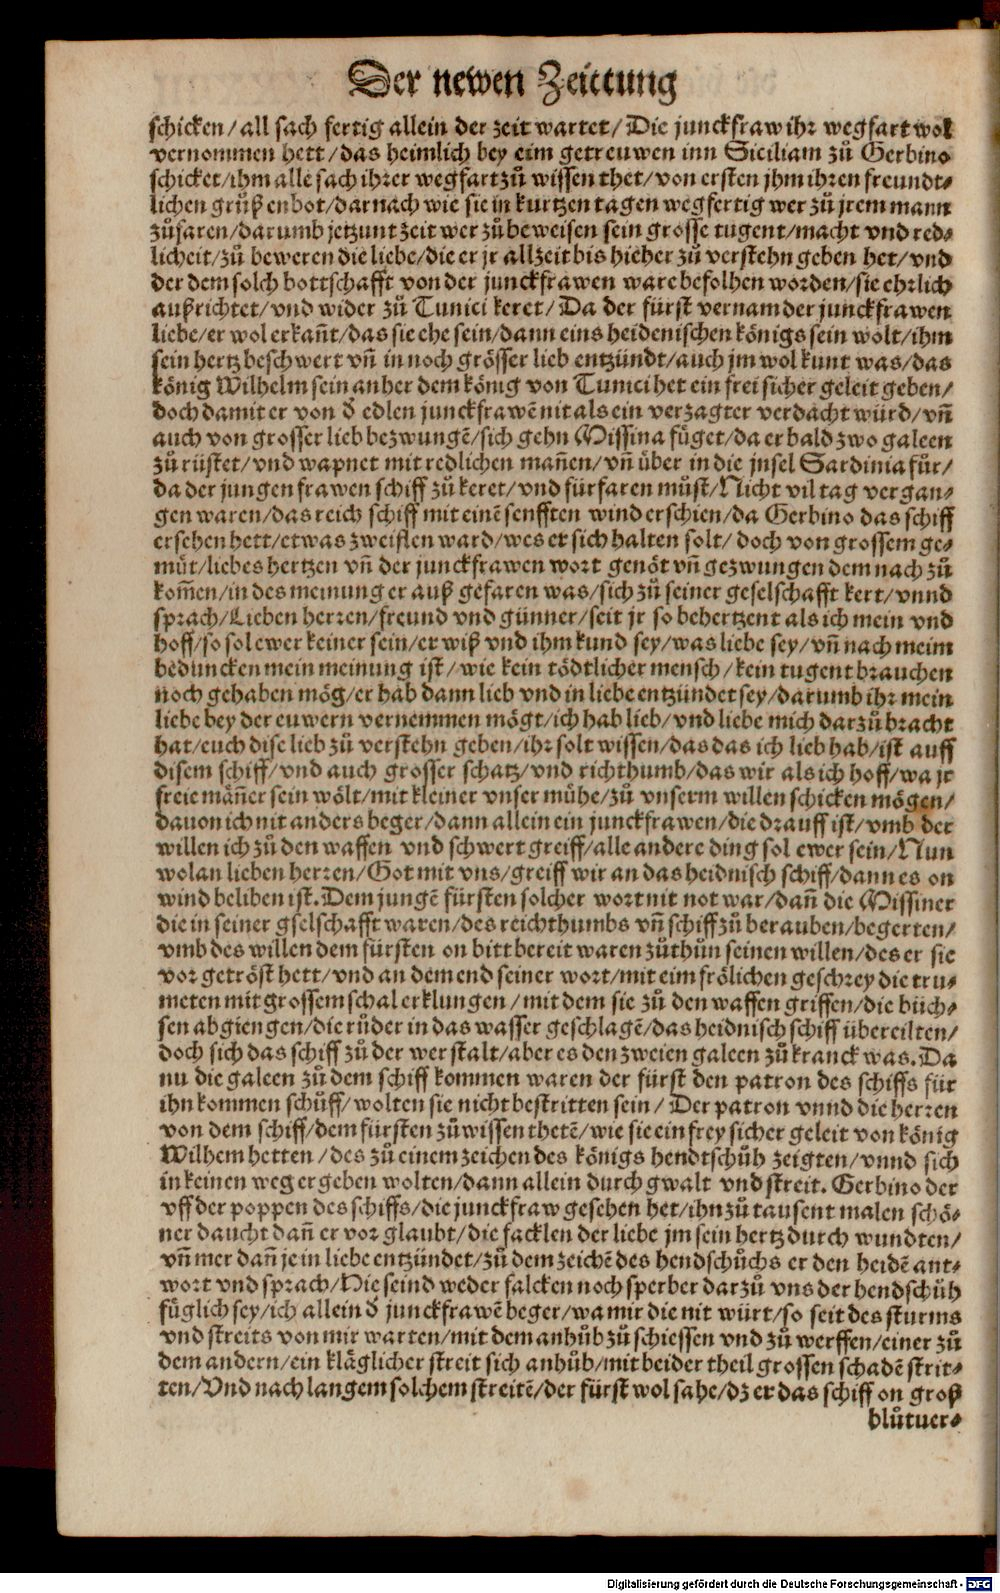 Der newen Zeittung
schicken / all sach fertig allein der zeit wartet / Die junckfraw ihr wegfart wol
vernommen hett / das heimlich bey eim getreuwen inn Siciliam zů Gerbino
schicket / ihm alle sach ihrer wegfart zů wissen thet / von ersten jhm ihren freundt⸗
lichen grůß enbot / darnach wie sie in kurtzen tagen wegfertig wer zů jrem mann
zůfaren / darumb jetzunt zeit wer zů beweisen sein grosse tugent / macht vnd red⸗
licheit / zů beweren die liebe / die er jr allzeit bis hieher zů verstehn geben het / vnd
der dem solch bottschafft von der junckfrawen ware befolhen worden / sie ehrlich
außrichtet / vnd wider zů Tunici keret / Da der fürst vernam der junckfrawen
liebe / er wol erkañt / das sie ehe sein / dann eins heidenischen königs sein wolt / ihm
sein hertz beschwert vñ in noch grösser lieb entzündt / auch jm wol kunt was / das
könig Wilhelm sein anher dem könig von Tunici het ein frei sicher geleit geben /
doch damit er von đ edlen junckfrawẽ nit als ein verzagter verdacht würd / vñ
auch von grosser lieb bezwungẽ / sich gehn Missina füget / da er bald zwo galeen
zů rüstet / vnd wapnet mit redlichen mañen / vñ über in die jnsel Sardinia fůr /
da der jungen frawen schiff zů keret / vnd fürfaren můst / Nicht vil tag vergan⸗
gen waren / das reich schiff mit einẽ senfften wind erschien / da Gerbino das schiff
ersehen hett / etwas zweiflen ward / wes er sich halten solt / doch von grossem ge⸗
müt / liebes hertzen vñ der junckfrawen wort genöt vñ gezwungen dem nach zů
kom̃en / in des meinung er auß gefaren was / sich zů seiner geselschafft kert / vnnd
sprach / Lieben herren / freund vnd günner / seit jr so behertzent als ich mein vnd
hoff / so sol ewer keiner sein / er wiß vnd ihm kund sey / was liebe sey / vñ nach meim
beduncken mein meinung ist / wie kein tödtlicher mensch / kein tugent brauchen
noch gehaben mög / er hab dann lieb vnd in liebe entzündet sey / darumb ihr mein
liebe bey der euwern vernemmen mögt / ich hab lieb / vnd liebe mich darzů bracht
hat / euch dise lieb zů verstehn geben / ihr solt wissen / das das ich lieb hab / ist auff
disem schiff / vnd auch grosser schatz / vnd richthumb / das wir als ich hoff / wa jr
freie mäñer sein wölt / mit kleiner vnser mühe / zů vnserm willen schicken mögen /
dauon ich nit anders beger / dann allein ein junckfrawen / die drauff ist / vmb der
willen ich zů den waffen vnd schwert greiff / alle andere ding sol ewer sein / Nun
wolan lieben herren / Got mit vns / greiff wir an das heidnisch schiff / dann es on
wind beliben ist. Dem jungẽ fürsten solcher wort nit not war / dañ die Missiner
die in seiner gselschafft waren / des reichthumbs vñ schiff zů berauben / begerten /
vmb des willen dem fürsten on bitt bereit waren zůthůn seinen willen / des er sie
vor getröst hett / vnd an dem end seiner wort / mit eim frölichen geschrey die tru⸗
meten mit grossem schal erklungen / mit dem sie zů den waffen griffen / die büch⸗
sen abgiengen / die růder in das wasser geschlagẽ / das heidnisch schiff übereilten /
doch sich das schiff zů der wer stalt / aber es den zweien galeen zů kranck was. Da
nu die galeen zů dem schiff kommen waren der fürst den patron des schiffs für
ihn kommen schůff / wolten sie nicht bestritten sein / Der patron vnnd die herren
von dem schiff / dem fürsten zů wissen thetẽ / wie sie ein frey sicher geleit von könig
Wilhem hetten / des zů einem zeichen des königs hendtschůh zeigten / vnnd sich
in keinen weg ergeben wolten / dann allein durch gwalt vnd streit. Gerbino der
vff der poppen des schiffs / die junckfraw gesehen het / ihn zů tausent malen schö⸗
ner daucht dañ er vor glaubt / die facklen der liebe jm sein hertz durch wundten /
vñ mer dañ je in liebe entzündet / zů dem zeichẽ des hendschůchs er den heidẽ ant⸗
wort vnd sprach / Hie seind weder falcken noch sperber darzů vns der hendschůh
füglich sey / ich allein đ junckfrawẽ beger / wa mir die nit würt / so seit des sturms
vnd streits von mir warten / mit dem anhůb zů schiessen vnd zů werffen / einer zů
dem andern / ein kläglicher streit sich anhůb / mit beider theil grossen schadẽ strit⸗
ten / Vnd nach langem solchem streitẽ / der fürst wol sahe / dz er das schiff on groß
blůtuer⸗
Digitalisierung gefördert durch die Deutsche Forschungsgemeinschaft - DFG